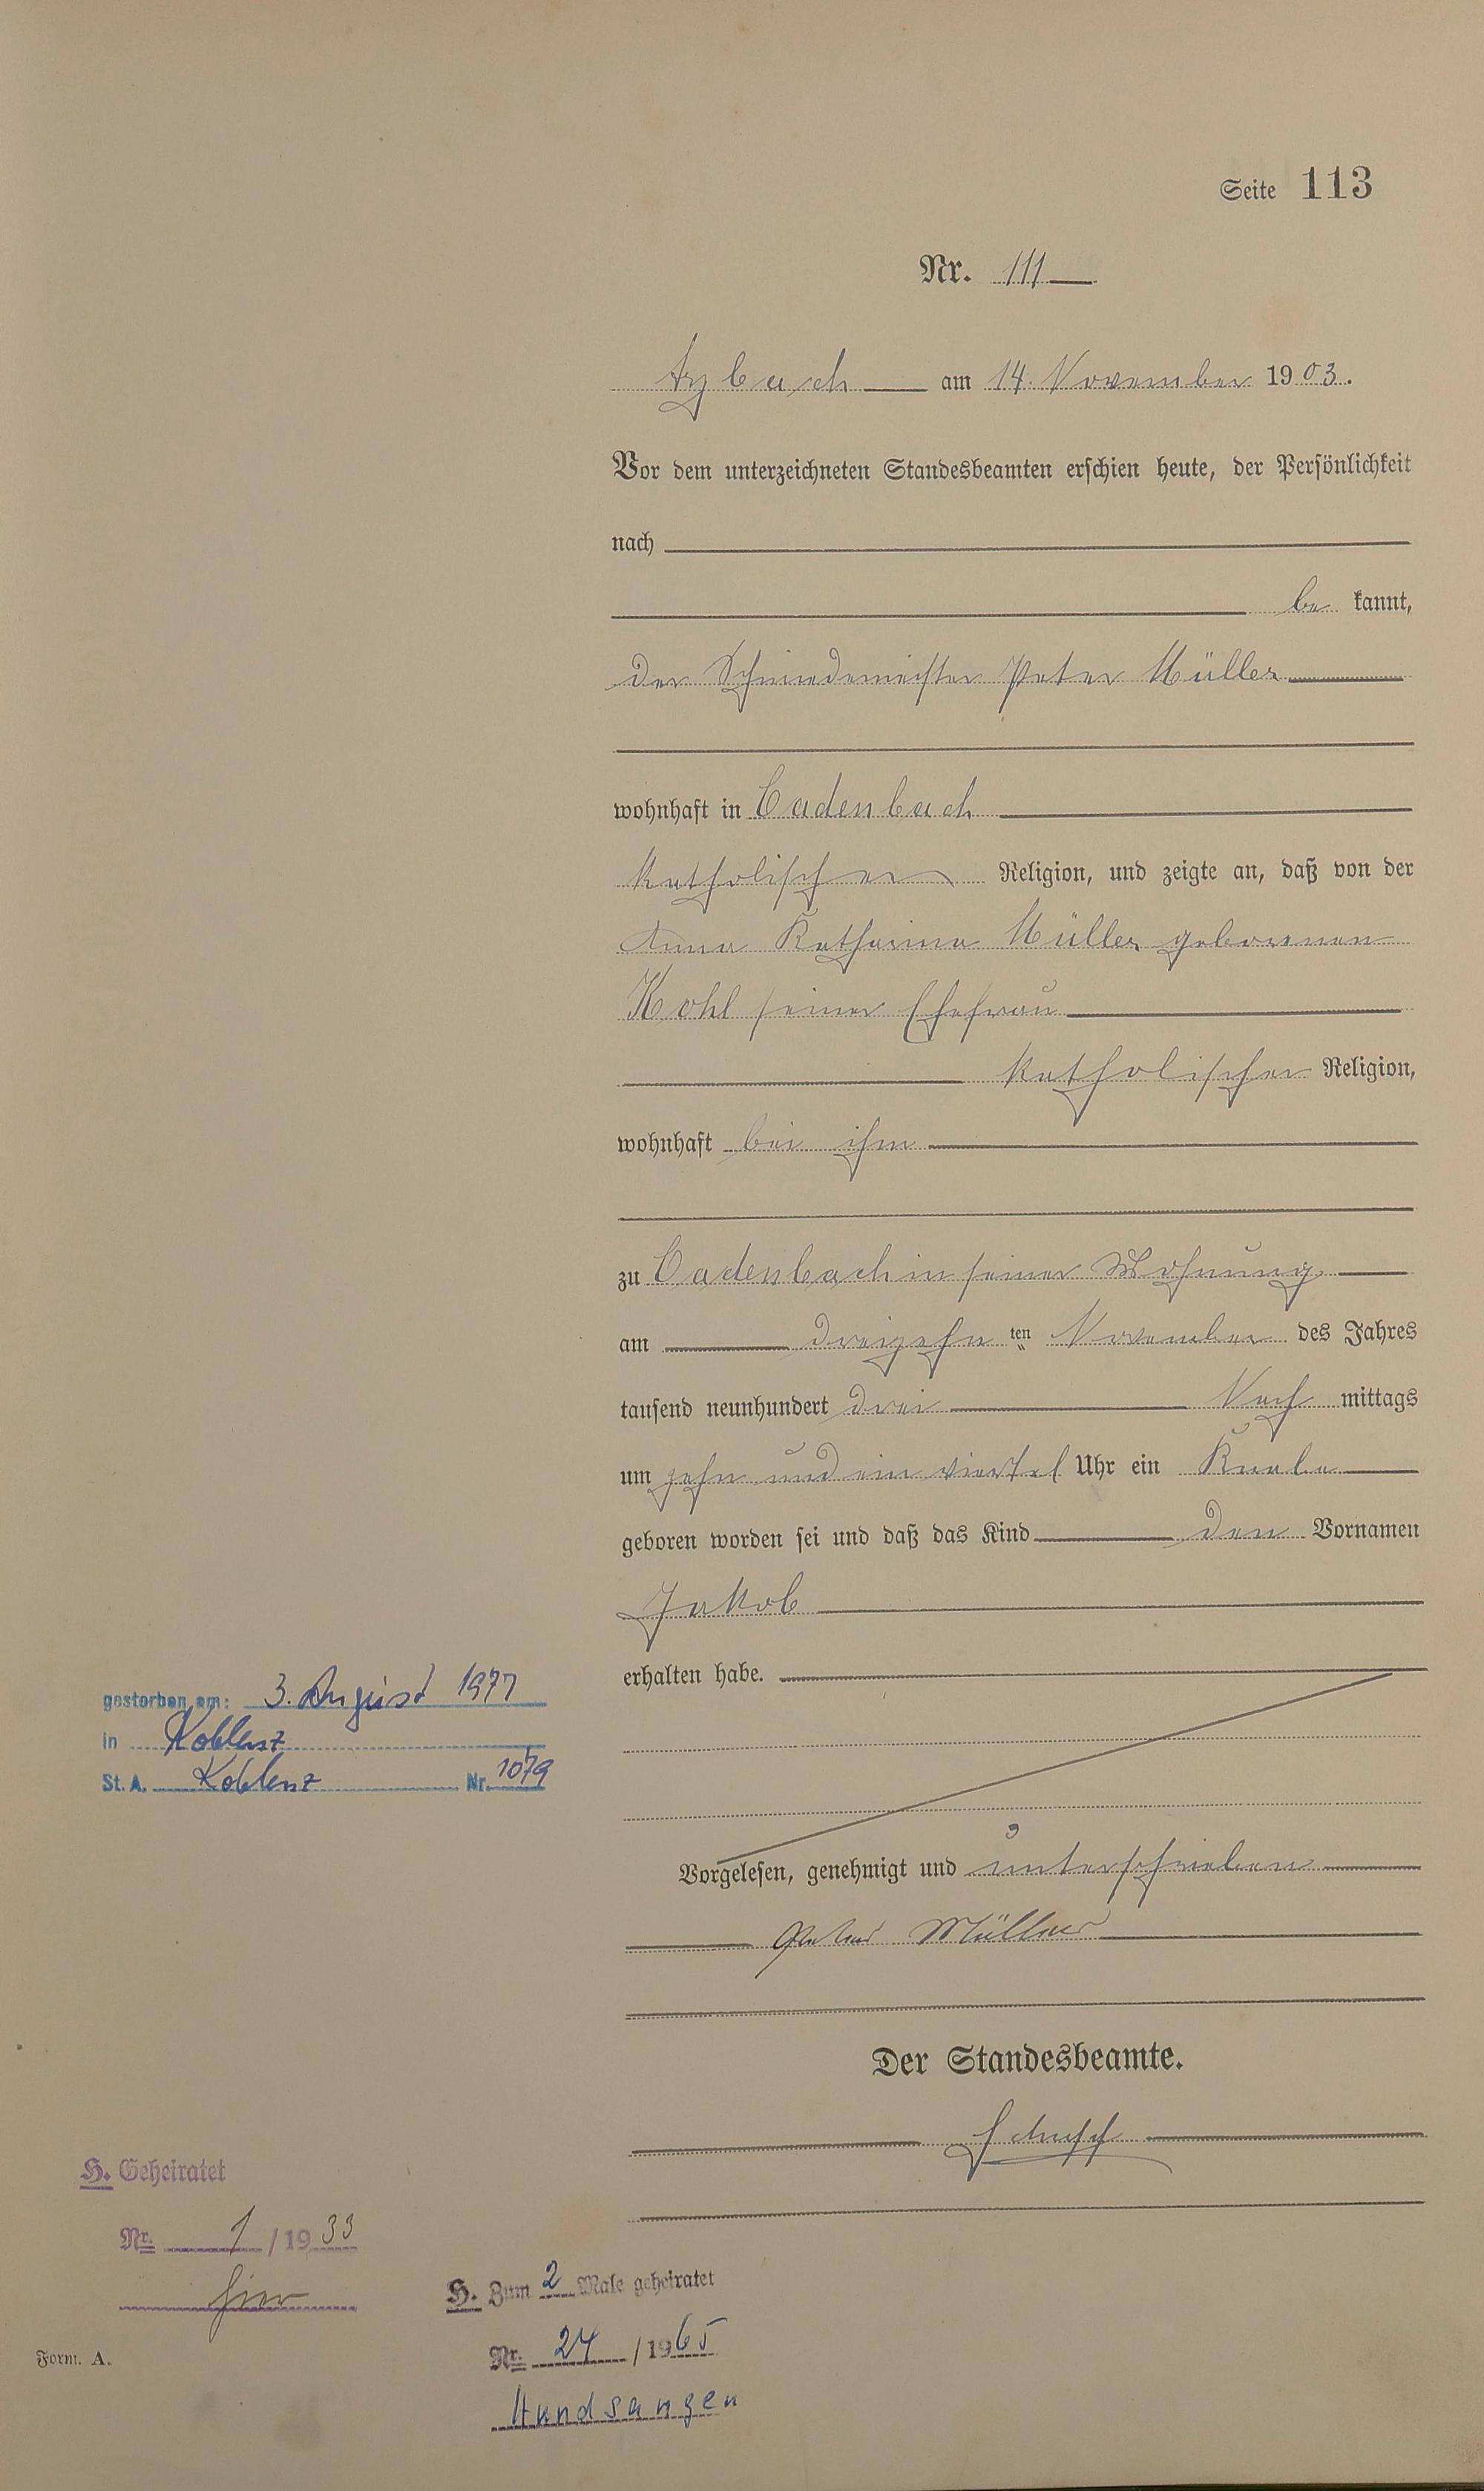 Seite 113
Nr. 111
Arzbach am 14. November 1903.
Vor dem unterzeichneten Standesbeamten erschien heute, der Persönlichkeit
nach
be kannt,
der Schmiedemeister Peter Müller
wohnhaft in Cadenbach
katholischer Religion, und zeigte an, daß von der
Anna Katharina Müller geborenen
Kohl seiner Ehefrau
katholischer Religion,
wohnhaft bei ihm
zu Cadenbach in seiner Wohnung
am dreizehn ten November des Jahres
tausend neunhundert drei Nach mittags
um zehn und ein viertel Uhr ein Knabe
geboren worden sei und daß das Kind den Vornamen
Jakob
erhalten habe.
gestorben am: 3. August 1977
in Koblenz
St. A. Koblenz Nr. 1079
Vorgelesen, genehmigt und unterschrieben
Peter Müller
Der Standesbeamte.
H. Geheiratet
Nr. 1/1933
hier
H. Zum 2 Male geheiratet
Nr. 24/1965
Hundsangen
Form. A.